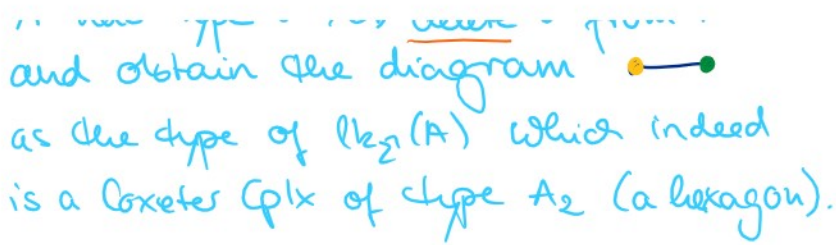 and obtain the diagram
as the type of lk_Σ(A) which indeed
is a Coxeter Cplx of type A₂ (a hexagon).